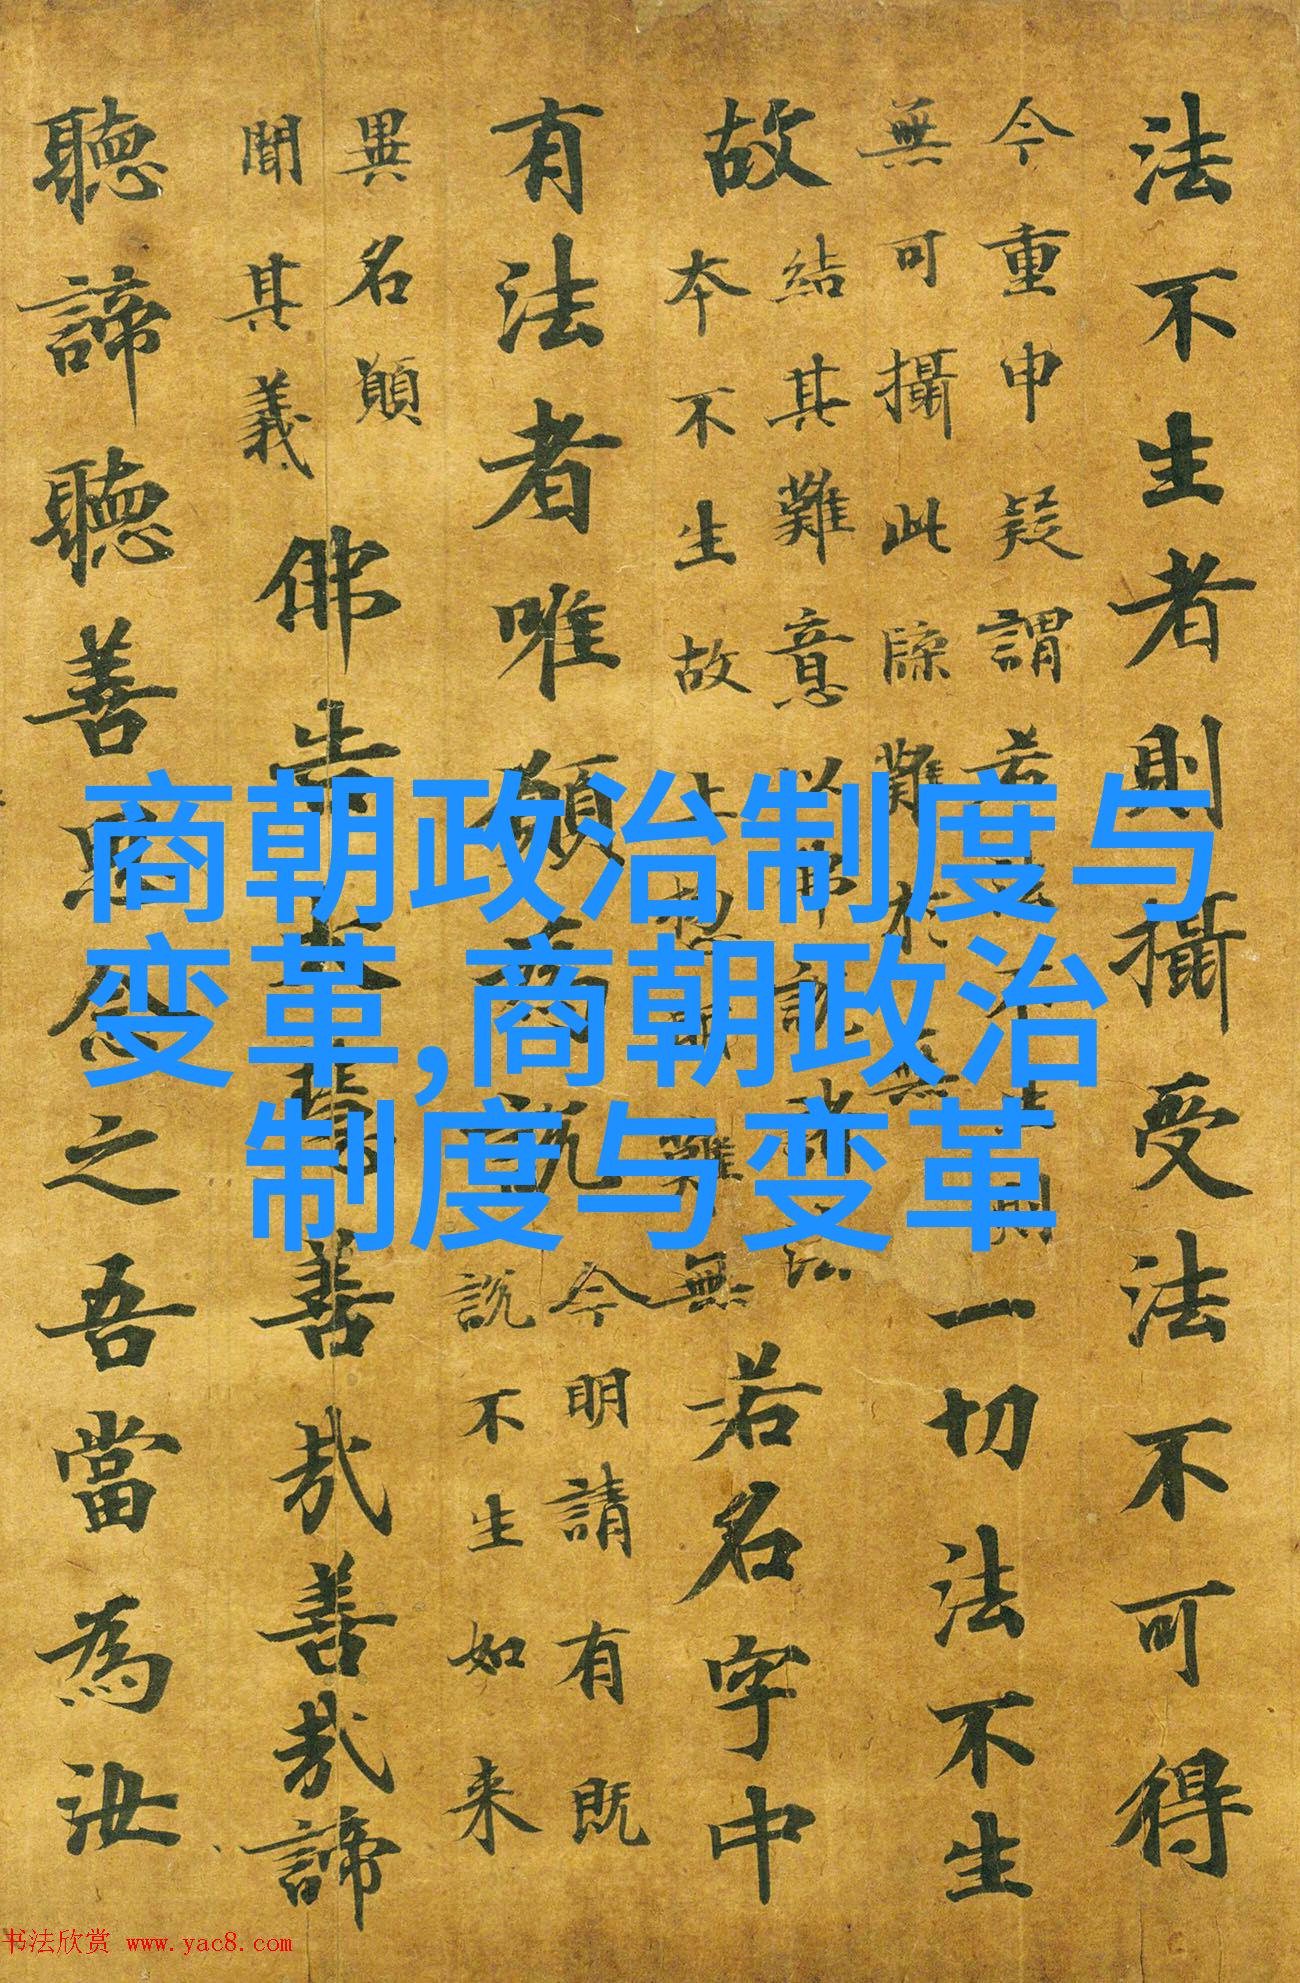 法不生者則攝受法不可得
今重申疑謂若法不生則
無可攝此牒難於無
一切法不生
故
結其難意以佛說諸法
本不生故上揔明難無
若名字中
有法者唯願為說
今明請有既
說不生如来
異名願
聞其義
佛告大慧善哉善哉諦
聽諦聽善思念之吾當為汝
商朝政治制度与
变革,商朝政治
制度与变革
书法欣赏 www.yac8.com